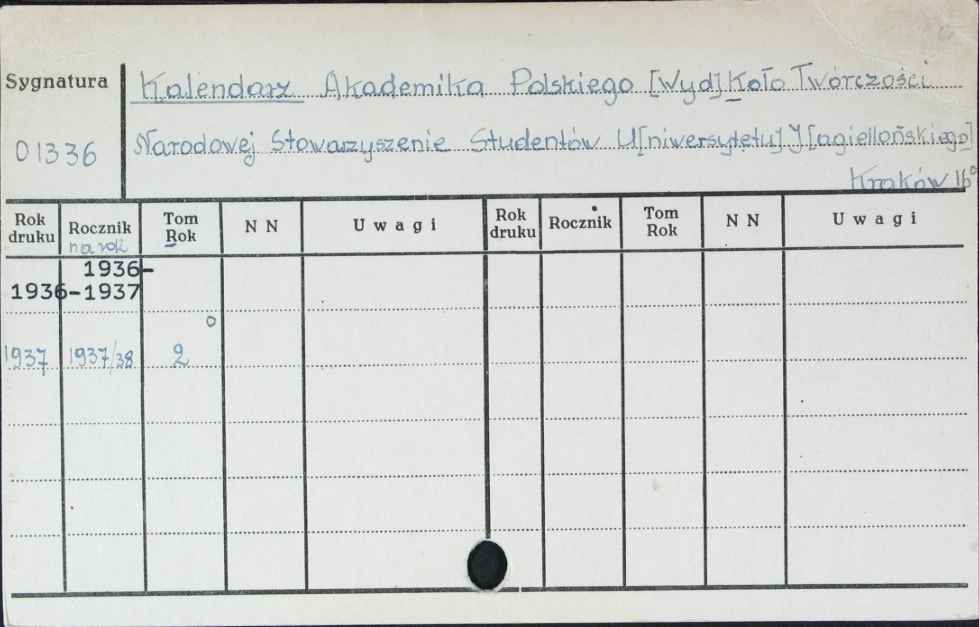 Sygnatura
Kalendarz Akademika Polskiego [Wyd] Koło Twórczości
01336
Narodowej Stowarzyszenie Studentów U[niwersytetu] J[agiellońskiego]
Kraków 16°
Rok druku Rocznik Tom Rok N N Uwagi Rok druku Rocznik Tom Rok N N Uwagi
na rok
1936-
1936-1937
1937 1937/38 2